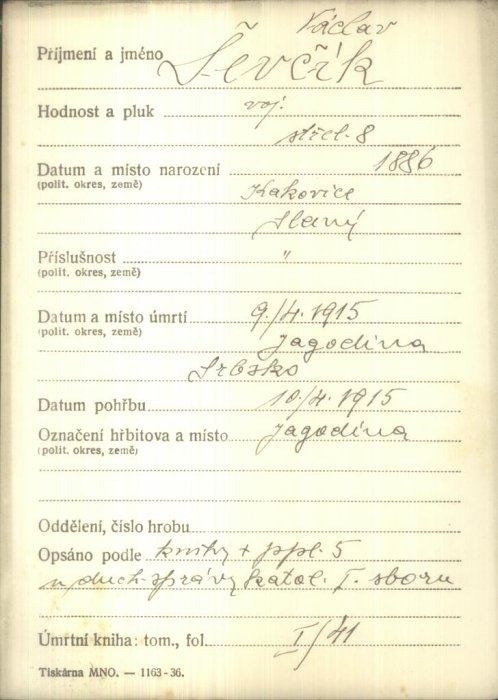 Václav
Příjmení a jméno Ševčík
Hodnost a pluk voj.
střel. 8
Datum a místo narození 1886
(polit. okres, země) Kakovice
Slaný
Příslušnost "
(polit. okres, země)
Datum a místo úmrtí 9./4. 1915
(polit. okres, země) Jagodina
Srbsko
Datum pohřbu 10/4. 1915
Označení hřbitova a místo Jagodina
(polit. okres, země)
Oddělení, číslo hrobu
Opsáno podle knihy + ppl. 5
n. duch. správy katol. I. sboru
Úmrtní kniha: tom., fol. I/41
Tiskárna MNO. — 1163-36.